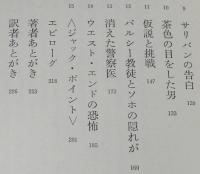 9 サリバンの告白 120
10 茶色の目をした男 133
11 仮説と挑戦 147
12 パルシー教徒とソホの隠れが 160
13 消えた警察医 173
14 ウエスト・エンドの恐怖 185
15 〈ジャック・ポイント〉 201
エピローグ 216
著者あとがき 223
訳者あとがき 225